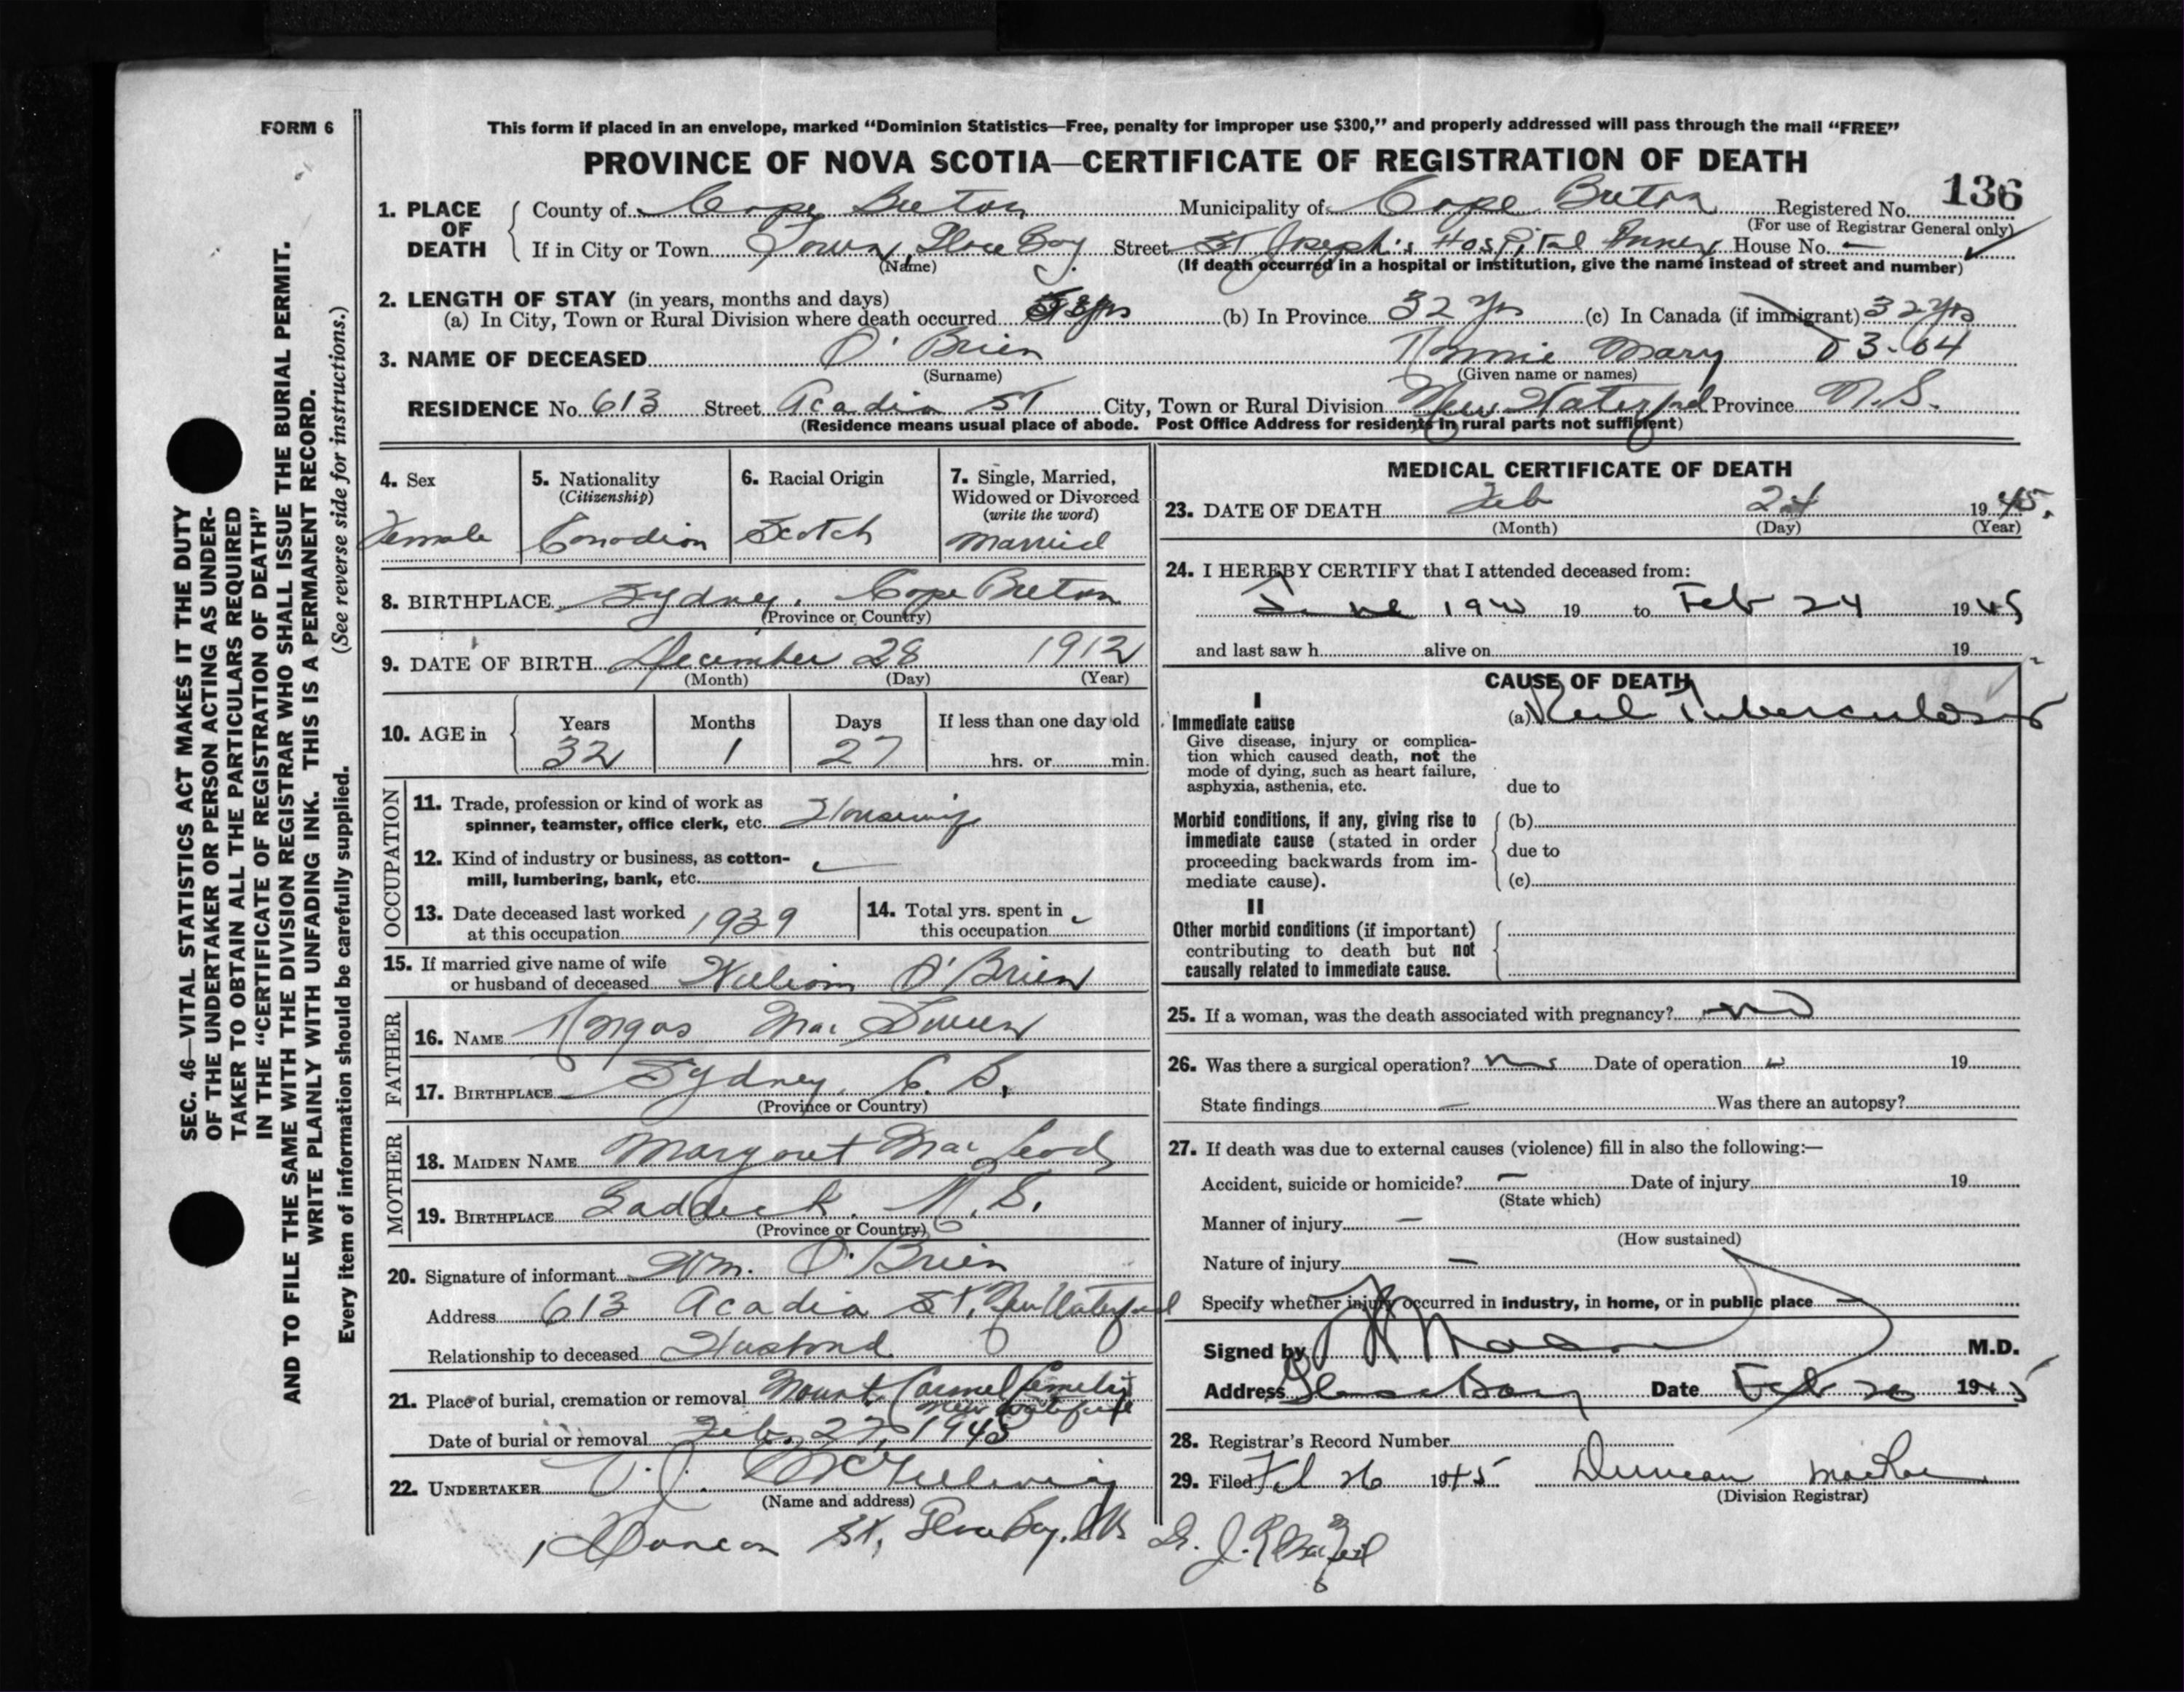 FORM 6
This form if placed in an envelope, marked “Dominion Statistics—Free, penalty for improper use $300,” and properly addressed will pass through the mail “FREE”
PROVINCE OF NOVA SCOTIA—CERTIFICATE OF REGISTRATION OF DEATH
136
1. PLACE OF DEATH
County of Cape Breton Municipality of Cape Breton Registered No.
(For use of Registrar General only)
If in City or Town Town, Glace Bay Street St Joseph's Hospital Annex House No. —
(Name) (If death occurred in a hospital or institution, give the name instead of street and number)
2. LENGTH OF STAY (in years, months and days)
(a) In City, Town or Rural Division where death occurred (b) In Province 32 Yrs (c) In Canada (if immigrant) 32 Yrs
3. NAME OF DECEASED O'Brien Annie Mary 3-64
(Surname) (Given name or names)
RESIDENCE No. 613 Street Acadia St City, Town or Rural Division New Waterford Province N.S.
(Residence means usual place of abode. Post Office Address for residents in rural parts not sufficient)
4. Sex
Female
5. Nationality
(Citizenship)
Canadian
6. Racial Origin
Scotch
7. Single, Married,
Widowed or Divorced
(write the word)
Married
8. BIRTHPLACE Sydney, Cape Breton
(Province or Country)
9. DATE OF BIRTH December 28 1912
(Month) (Day) (Year)
10. AGE in
Years Months Days If less than one day old
32 1 27 hrs. or min.
OCCUPATION
11. Trade, profession or kind of work as
spinner, teamster, office clerk, etc. Housewife
12. Kind of industry or business, as cotton-
mill, lumbering, bank, etc.
13. Date deceased last worked
at this occupation 1939
14. Total yrs. spent in
this occupation
15. If married give name of wife
or husband of deceased William O'Brien
FATHER
16. NAME Angus Mac
17. BIRTHPLACE Sydney, C. B.
(Province or Country)
MOTHER
18. MAIDEN NAME Margaret MacLeod
19. BIRTHPLACE Baddeck, N.S.
(Province or Country)
20. Signature of informant Wm. O'Brien
Address 613 Acadia St, New Waterford
Relationship to deceased Husband
21. Place of burial, cremation or removal Mount Carmel Cemetery
New Waterford
Date of burial or removal Feb. 27, 1945
22. UNDERTAKER V. J. McGillivray
(Name and address)
Duncan St, Glace Bay, NS
MEDICAL CERTIFICATE OF DEATH
23. DATE OF DEATH Feb 24 1945.
(Month) (Day) (Year)
24. I HEREBY CERTIFY that I attended deceased from:
June 19 to Feb 24 1945
and last saw h alive on 19
CAUSE OF DEATH
I
Immediate cause
Give disease, injury or complica-
tion which caused death, not the
mode of dying, such as heart failure,
asphyxia, asthenia, etc.
(a) Tuberculosis
due to
Morbid conditions, if any, giving rise to
immediate cause (stated in order
proceeding backwards from im-
mediate cause).
(b)
due to
(c)
II
Other morbid conditions (if important)
contributing to death but not
causally related to immediate cause.
25. If a woman, was the death associated with pregnancy? no
26. Was there a surgical operation? Date of operation 19
State findings — Was there an autopsy?
27. If death was due to external causes (violence) fill in also the following:—
Accident, suicide or homicide? — Date of injury 19
(State which)
Manner of injury —
(How sustained)
Nature of injury —
Specify whether injury occurred in industry, in home, or in public place —
Signed by M.D.
Address Glace Bay Date Feb 26 1945
28. Registrar's Record Number
29. Filed Feb 26 1945 Duncan MacRae
(Division Registrar)
Dr. J. R. MacNeil
SEC. 46—VITAL STATISTICS ACT MAKES IT THE DUTY
OF THE UNDERTAKER OR PERSON ACTING AS UNDER-
TAKER TO OBTAIN ALL THE PARTICULARS REQUIRED
IN THE “CERTIFICATE OF REGISTRATION OF DEATH”
AND TO FILE THE SAME WITH THE DIVISION REGISTRAR WHO SHALL ISSUE THE BURIAL PERMIT.
WRITE PLAINLY WITH UNFADING INK. THIS IS A PERMANENT RECORD.
Every item of information should be carefully supplied. (See reverse side for instructions.)